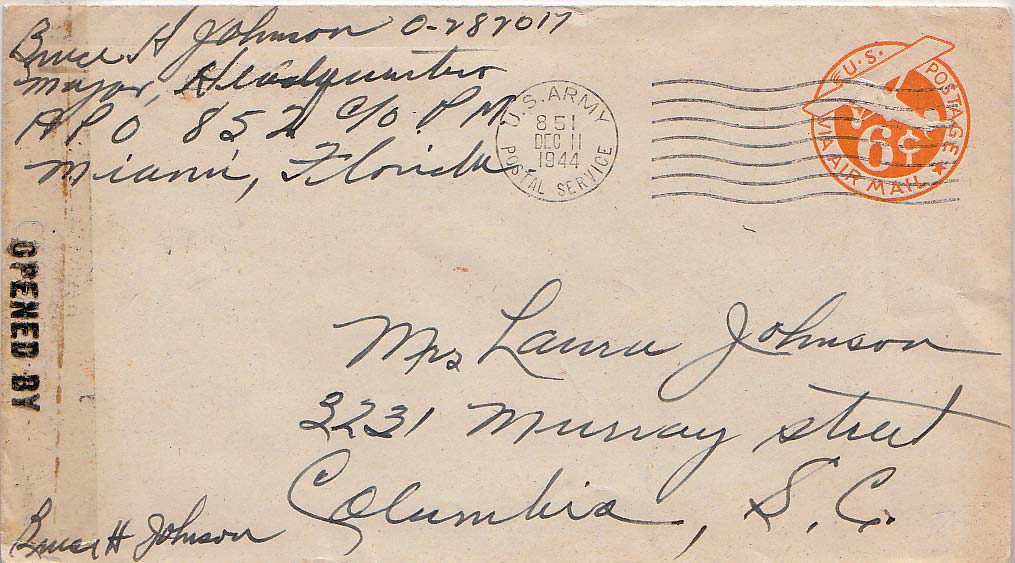 Bruce H Johnson O-287017
Major, Headquarters
APO 852 c/o P M
Miami, Florida
U.S. ARMY
851
DEC 11
1944
POSTAL SERVICE
U.S. POSTAGE
6¢
VIA AIR MAIL
OPENED BY
Mrs Laura Johnson
3231 Murray street
Columbia, S. C.
Bruce H Johnson